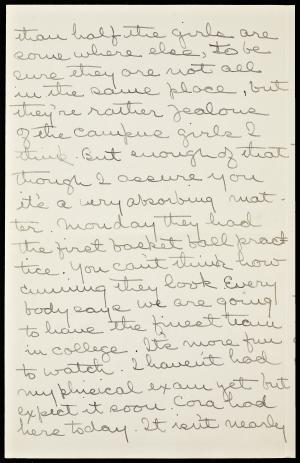 than half the girls are
some where else, to be
sure they are not all
in the same place, but
they're rather jealous
of the campus girls I
think. But enough of that
though I assure you
it's a very absorbing mat-
ter. Monday they had
the first basket ball prac-
tice. You can't think how
cunning they look. Every
body says we are going
to have the finest team
in college. It's more fun
to watch. I haven't had
my phisical exam yet but
expect it soon. Cora had
hers today. It isn't nearly